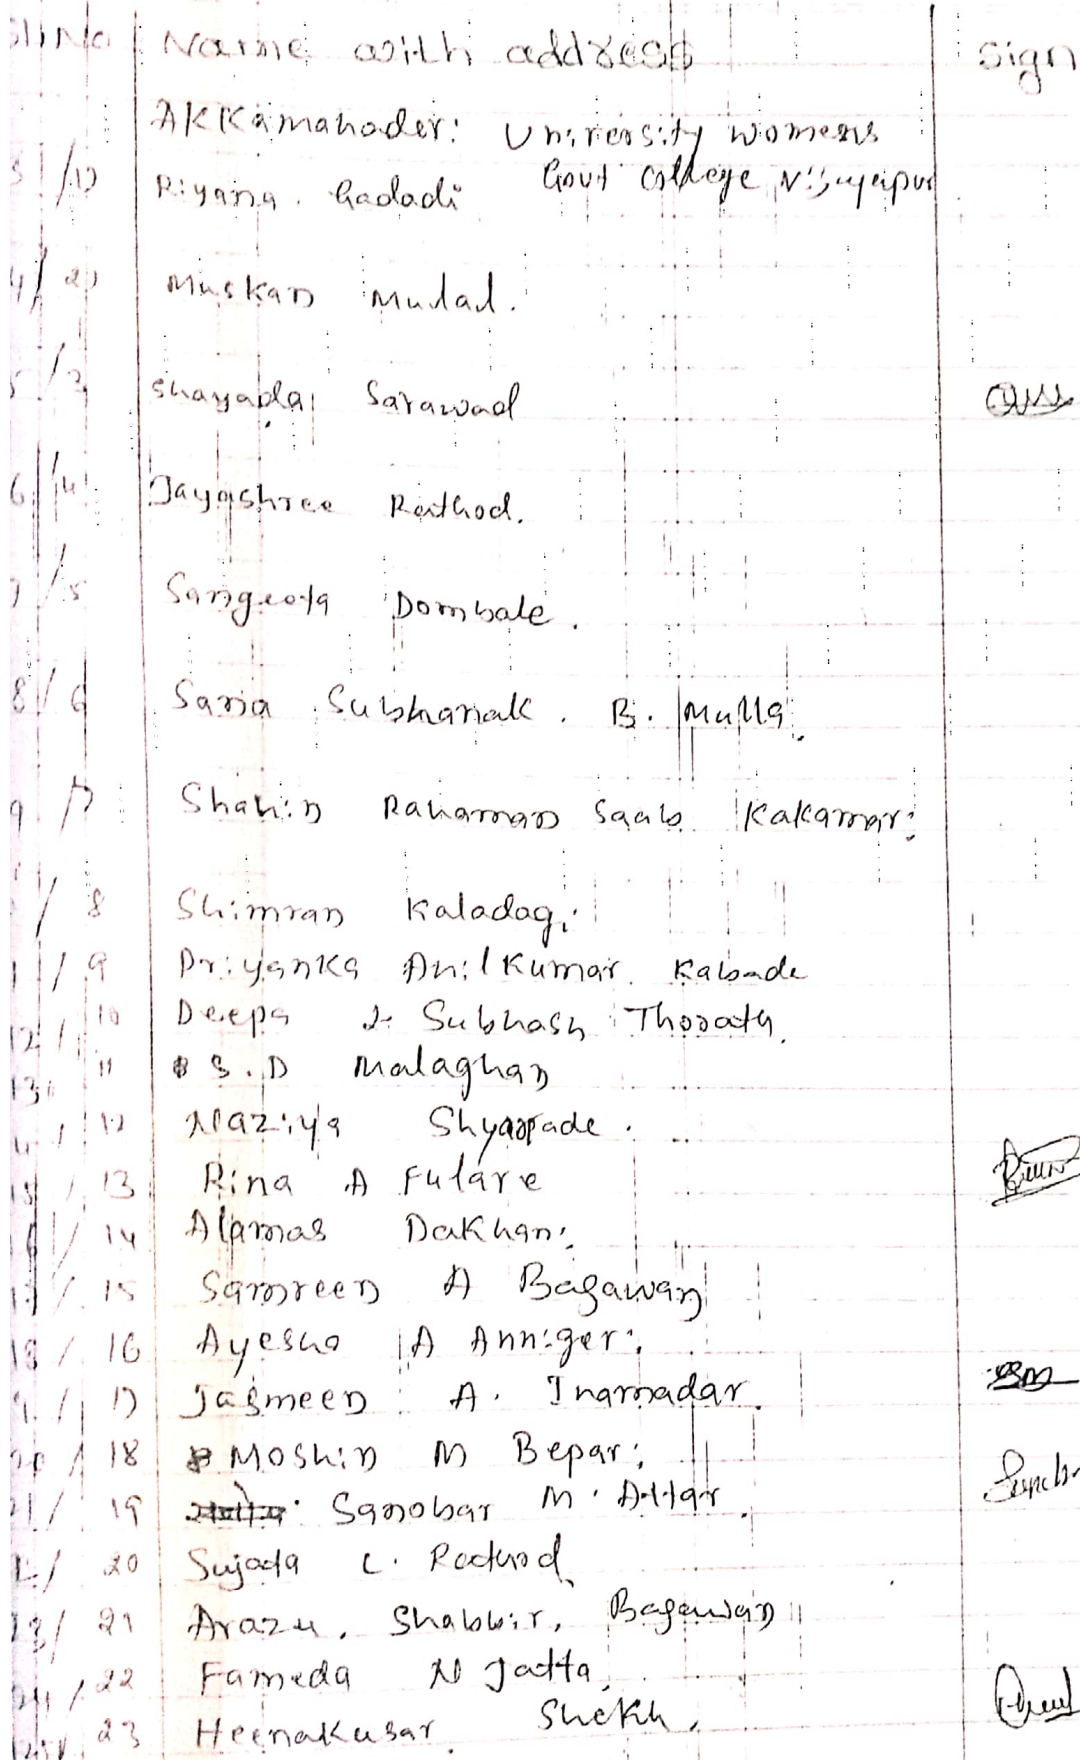 Sl No Name with address Sign
Akkamahadevi University womens
Govt College Vijayapur
3/1) Riyana. Gadadi
4/2) Muskan Mudad.
5/3 Shayabdai Sarawad
6/4 Jayashree Rathod.
7/5 Sangeeta Dombale.
8/6 Sania Subhanak. B. Mulla.
9/7 Shahin Rahaman Saab Kakamari
/8 Shimran Kaladagi
/9 Priyanka Anilkumar Kabade
12/10 Deepa Subhash Thorath.
13/11 S.D Malaghan
/12 Naziya Shyapade.
15/13 Rina A Futare
/14 Alamas Dakhani
17/15 Samreen A Bagawan
18/16 Ayesha A Annigeri
/17 Jasmeen A. Inamadar.
20/18 Moshin M Bepari
21/19 Sanobar M. Attar
/20 Sujata L. Rathod
23/21 Arazu, Shabbir, Bagawan
24/22 Fameda N Jatta
25/23 Heenakusar Shekh,